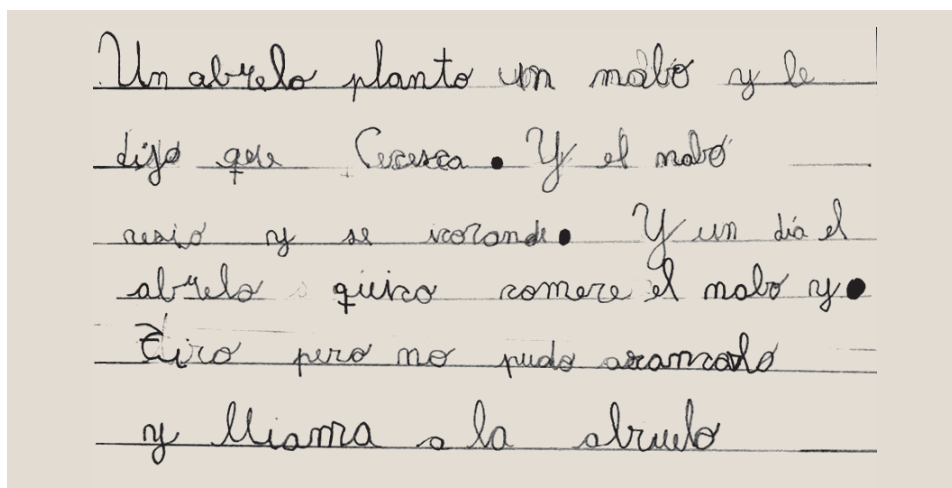 Un abrelo planto un nabo y le
dijo que Crezca. Y el nabo
resio y se izo rande. Y un día el
abrelo quizo comere el nabo y.
Tiro pero no pudo arrancarlo
y lliama a la abruelo